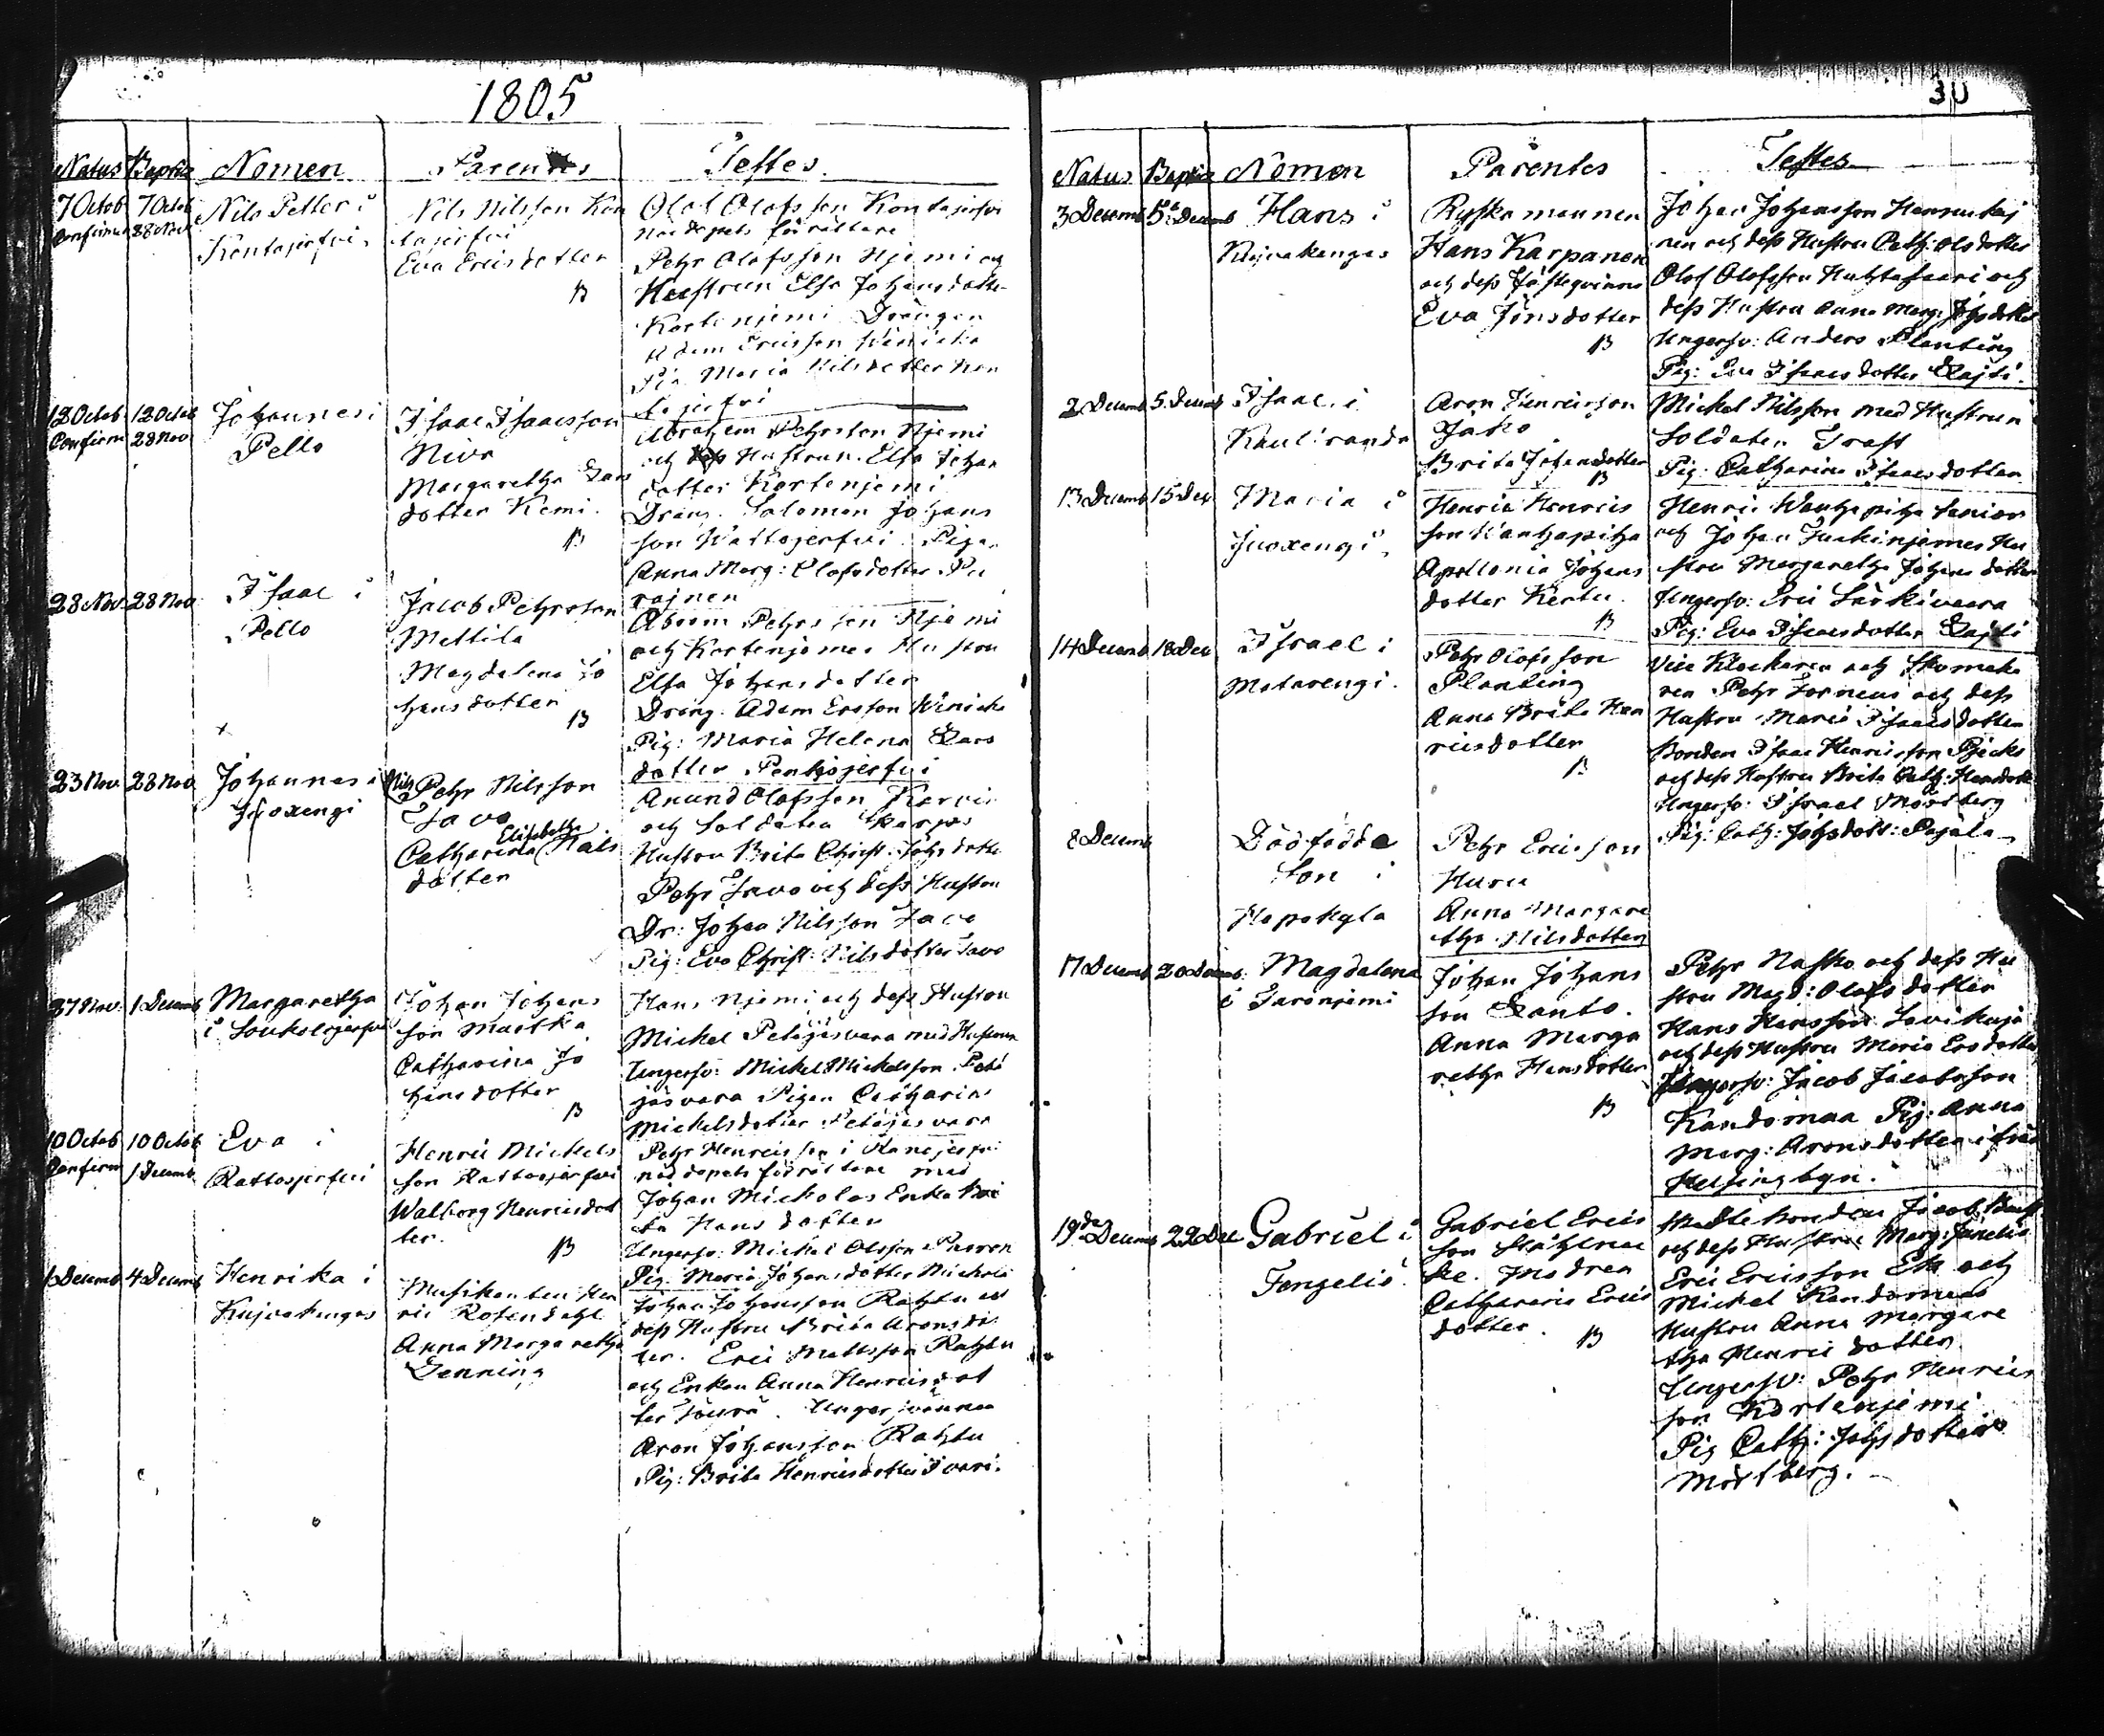 1805
Natus Baptiz Nomen Parentes Testes
7 Octob 7 Octob Nils Petter i
Confirm 28 Nov
Kontojerfvi
Nils Nilsson Kon
tojerfvi
Eva Ericsdotter
B
Olof Olofsson Kontojerfvi
nöddopets förrättare
Petr Olofsson Njemi och
Hustrun Elsa Johansdotter
Kortenjemi Drängen
Adam Ericsson Winicka
Pig. Maria Nilsdotter Kon
tojerfvi
12 Octob 12 Octob Johannes i
Confirm 28 Nov
Pello
Isaac Isaacsson
Niva
Margaretha Lars
dotter Kemi
B
Abraham Pehrsson Njemi
och Hustrun Elsa Johan
dotter Kortenjemi
Dräng. Salomon Johans
son Wattojerfvi Pigan
Anna Marg: Olofsdotter Pu
rainen
28 Nov 28 Nov Isaac i
Pello
Jacob Pehrsson
Mettila
Magdalena Jo
hansdotter
B
Abram Pehrsson Njemi
och Kortenjemes Hustru
Elsa Johansdotter
Dräng. Adam Ersson Winicka
Pig: Maria Helena Lars
dotter Penkojerfvi
23 Nov 28 Nov Johannes i
Juoxengi
Nils
Pehr Nilsson
Javo
Elisabetha
Catharina Nils
dotter
Anund Olofsson Karvin
och Soldaten Skarps
Hustru Brita Christ: Johsdotter
Pehr Javo och dess Hustru
Dr: Johan Nilsson Javo
Pig: Eva Christ: Nilsdotter Javo
27 Nov 1 Decemb Margaretha
i Loukolojerfvi
Johan Johans
son Martka
Catharina Jo
hansdotter
B
Hans Njemi och dess Hustru
Mickel Petäjäsvara med Hustrun
Ungersv: Mickel Mickelsson Petä
jäsvara Pigan Catharina
Mickelsdotter Petäjäsvara
10 Octob 10 Octob Eva i
Confirm 1 Decemb
Rattosjerfvi
Henric Mickels
son Rattosjerfvi
Walborg Henricsdot
ter.
B
Pehr Henricsson i
nöddopets förrättare med
Johan Mickolas Enka Bri
ta Hansdotter
Ungersv: Mickel Olsson
Pig. Maria Johansdotter Mickola
1 Decemb 4 Decemb Henrika i
Kuivakangas
Musikanten Hen
ric Rosendahl
Anna Margaretha
Genning
Johan Johansson Rahtu och
dess Hustru Brita Aronsdot
ter. Eric Mattsson Rahtu
och Enkan Anna Henricsdot
ter. Ungersvennen
Aron Johansson Rahtu
Pig: Brita Henricsdotter Ivari.
30
Natus Baptiz Nomen Parentes Testes
3 Decemb 5 Decemb Hans i
Kuivakangas
Ryska mannen
Hans Karpanen
och dess Fästeqvinna
Eva Jönsdotter
B
Johan Johansson
och dess Hustru Cath: Olsdotter
Olof Olofsson Huhtasaari och
dess Hustru Anna Marg: Johsdotter
Ungersv: Anders Planting
Pig: Eva Isaacsdotter Lajti.
2 Decemb 5 Decemb Isaac i
Kauliranda
Aron Henricsson
Jako
Brita Johansdotter
B
Mickel Nilsson med Hustrun
Soldaten Trast
Pig: Catharina Isaacsdotter
13 Decemb 15 Dec Maria i
Juoxengi
Henric Henrics
son Wanhapiha
Apollonia Johans
dotter Kertu.
B
Henric Wanhapiha Senior
och Johan Juckinjemes Hu
stru Margaretha Johansdotter
Ungersv: Eric Särkivaara
Pig: Eva Isaacsdotter Lajti
14 Decemb 18 Dec Israel i
Matarengi.
Pehr Olofsson
Planting
Anna Brita Hen
ricsdotter
B
Vice Klockaren och Skomaka
ren Pehr Forneus och dess
Hustru Maria Isaacsdotter
Bonden Isaac Henricsson
och dess Hustru Brita Cath: Hendott
Ungersv: Israel Mörtberg
Pig: Cath: Johsdott: Pajala
8 Decemb Dödfödde
Son i
Hapakyla
Pehr Ericsson
Huru
Anna Margare
tha Nilsdotter
17 Decemb 20 Decemb: Magdalena
i Saronjemi
Johan Johans
son Lanto.
Anna Marga
retha Hansdotter
B
Pehr Nasko och dess Hu
stru Magd: Olofsdotter
Hans Hansson Lovikuja
och dess Hustru Maria Ersdotter
Ungersv: Jacob Jacobsson
Kandomaa Pig: Anna
Marg: Aronsdotter ifrån
Helsingbyn.
19de Decemb 22 Dec Gabriel i
Tengeliö.
Gabriel Erics
son
Catharina Erics
dotter. B
Bonden Jacob
och dess Hustru Marg:
Eric Ericsson Ek och
Mickel Kandomaas
Hustru Anna Margare
tha Henricdotter
Ungersv: Pehr Henrics
son Kortenjemi
Pig Cath: Johsdotter
Mörtberg.